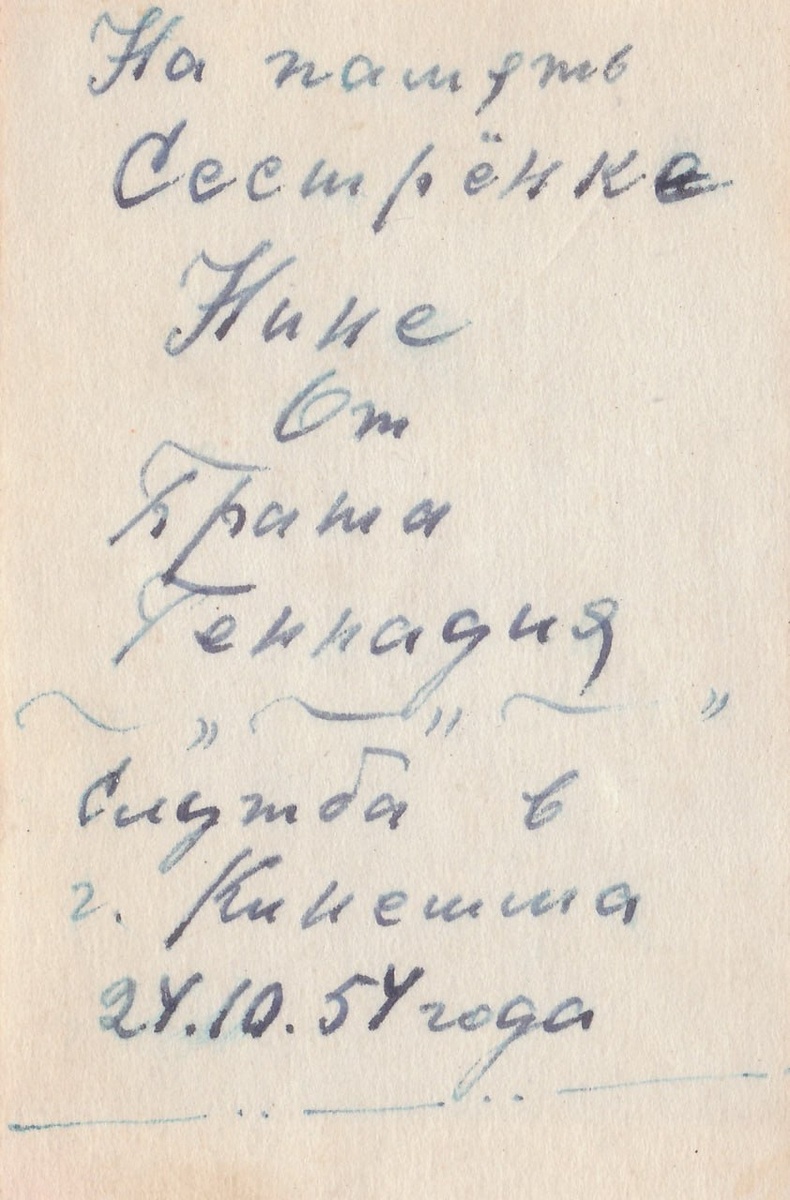 На память
Сестрёнке
Нине
От
Брата
Геннадия
Служба в
г. Кинешма
24.10.54 года